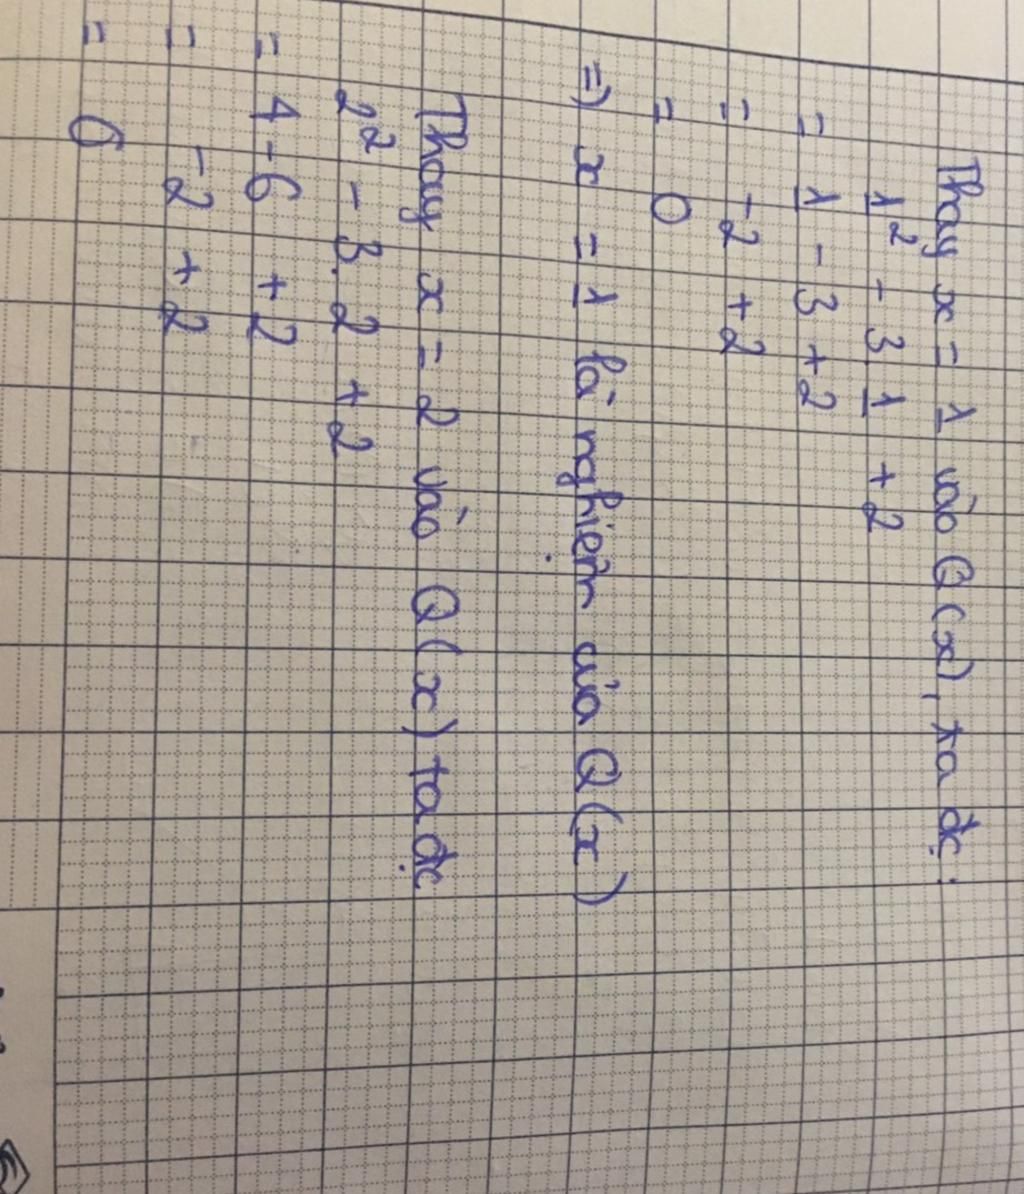 Thay x = 1 vào Q(x), ta đc:
1² - 3 1 + 2
= 1 - 3 + 2
= -2 + 2
= 0
=) x = 1 là nghiệm của Q(x)
Thay x = 2 vào Q(x) ta đc
2² - 3.2 + 2
= 4 - 6 + 2
= -2 + 2
= 0